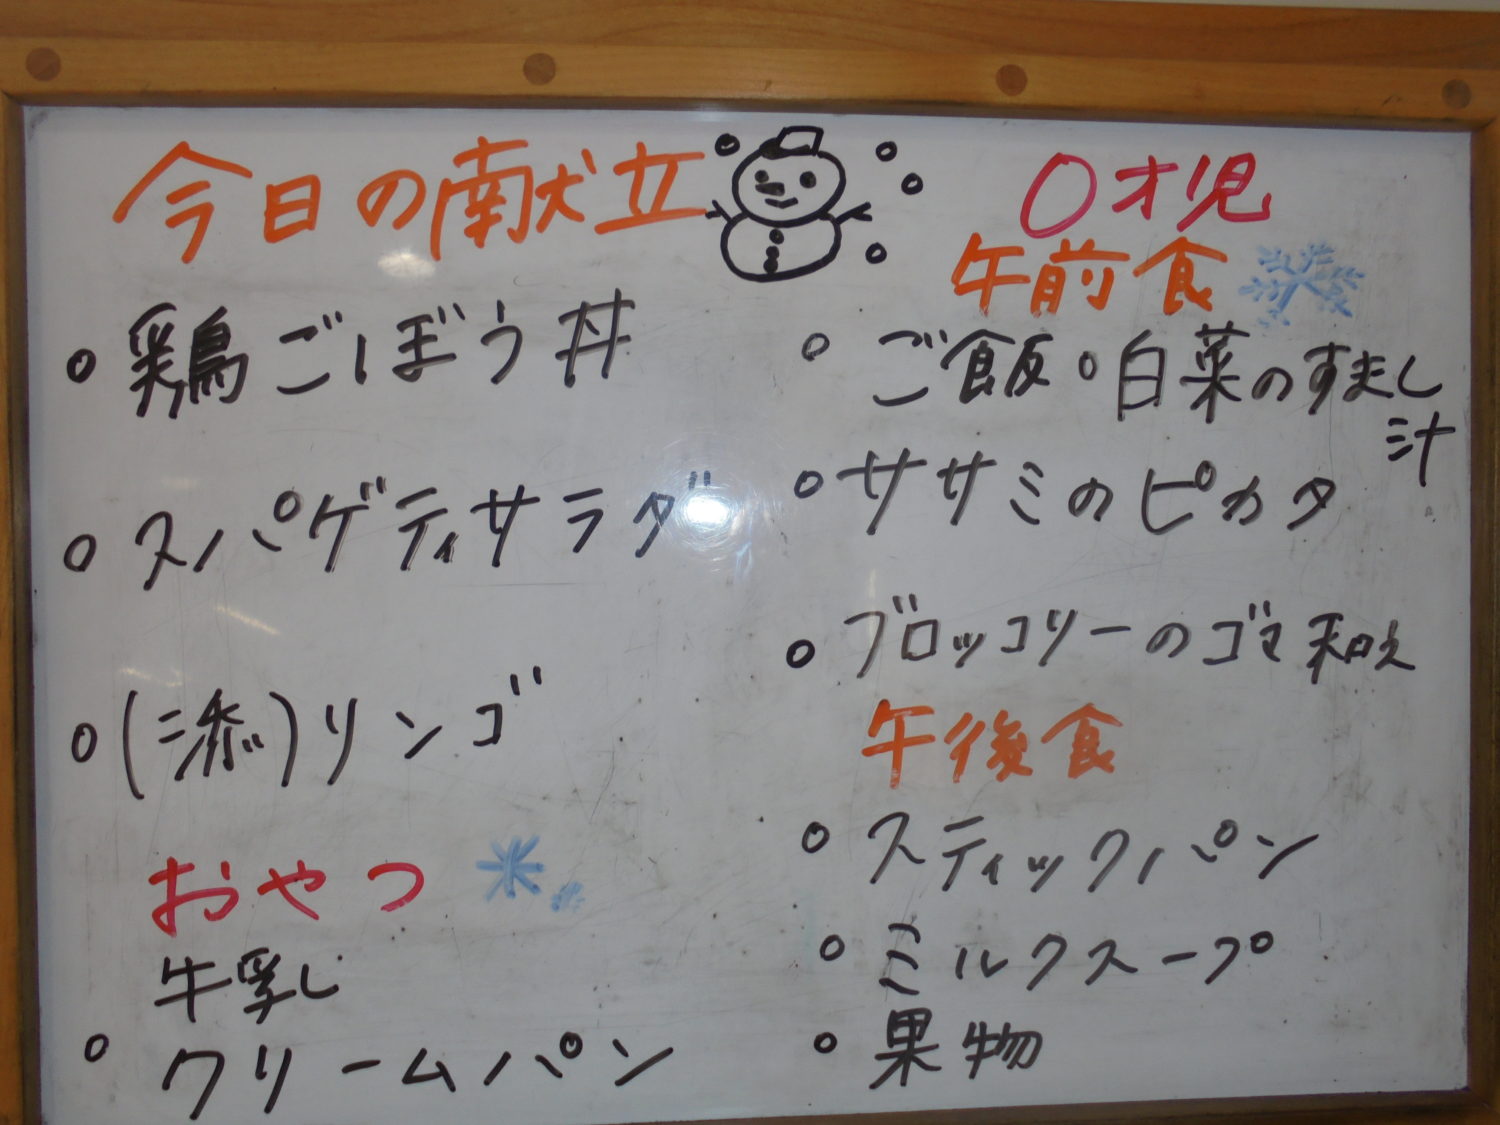 今日の献立
・鶏ごぼう丼
・スパゲティサラダ
・(添)リンゴ
おやつ
牛乳
・クリームパン
0才児
午前食
・ご飯・白菜のすまし
汁
・ササミのピカタ
・ブロッコリーのゴマ和え
午後食
・スティックパン
・ミルクスープ
・果物